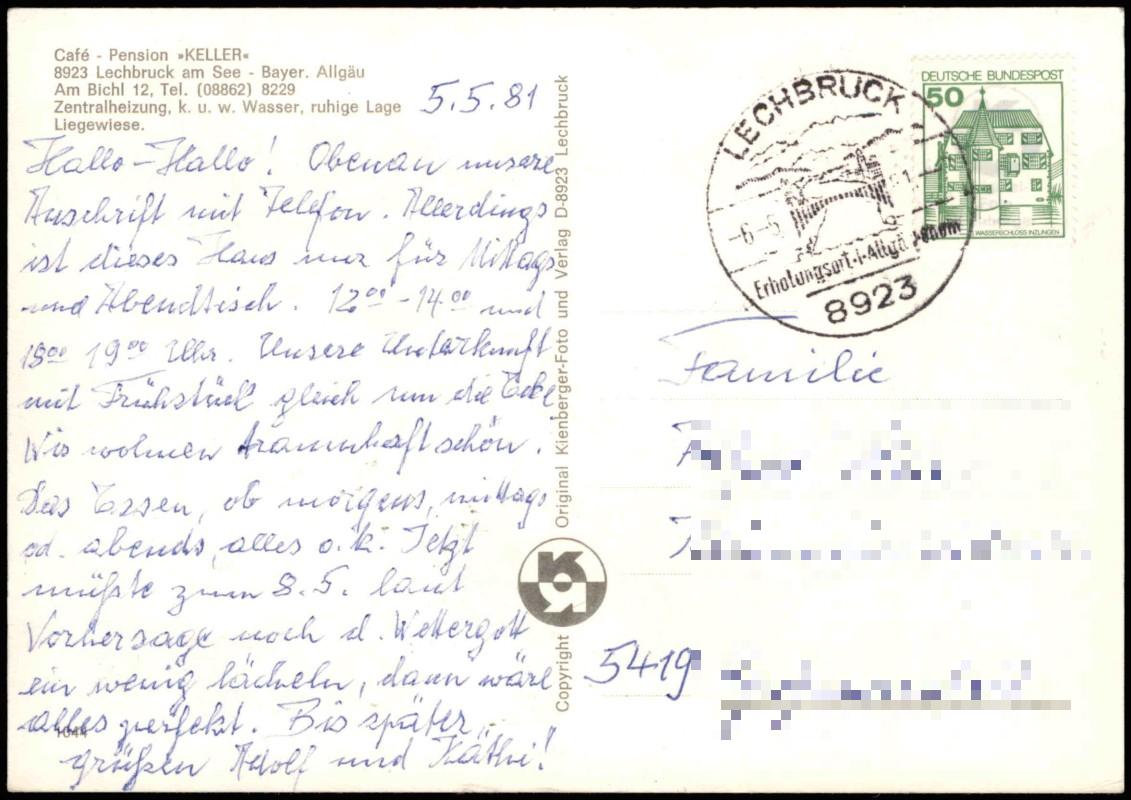 Café - Pension »KELLER«
8923 Lechbruck am See - Bayer. Allgäu
Am Bichl 12, Tel. (08862) 8229
Zentralheizung, k. u. w. Wasser, ruhige Lage
Liegewiese.
5.5.81
Hallo-Hallo! Obenan unsere
Anschrift mit Telefon. Allerdings
ist dieses Haus nur für Mittags
und Abendtisch. 12⁰⁰-14⁰⁰ und
18⁰⁰ 19⁰⁰ Uhr. Unsere Unterkunft
mit Frühstück gleich um die Ecke
Wir wohnen traumhaft schön.
Das Essen, ob morgens, mittags
od. abends, alles o.k. Jetzt
müßte zum 8.5. laut
Vorhersage noch d. Wettergott
ein wenig lächeln, dann wäre
alles perfekt. Bis später
grüßen Adolf und Käthi!
1044
Copyright
Original Kienberger-Foto und Verlag D-8923 Lechbruck
LECHBRUCK
-6-5
Erholungsort·i·Allgäu
8923
DEUTSCHE BUNDESPOST
50
WASSERSCHLOSS INZLINGEN
Familie
5419